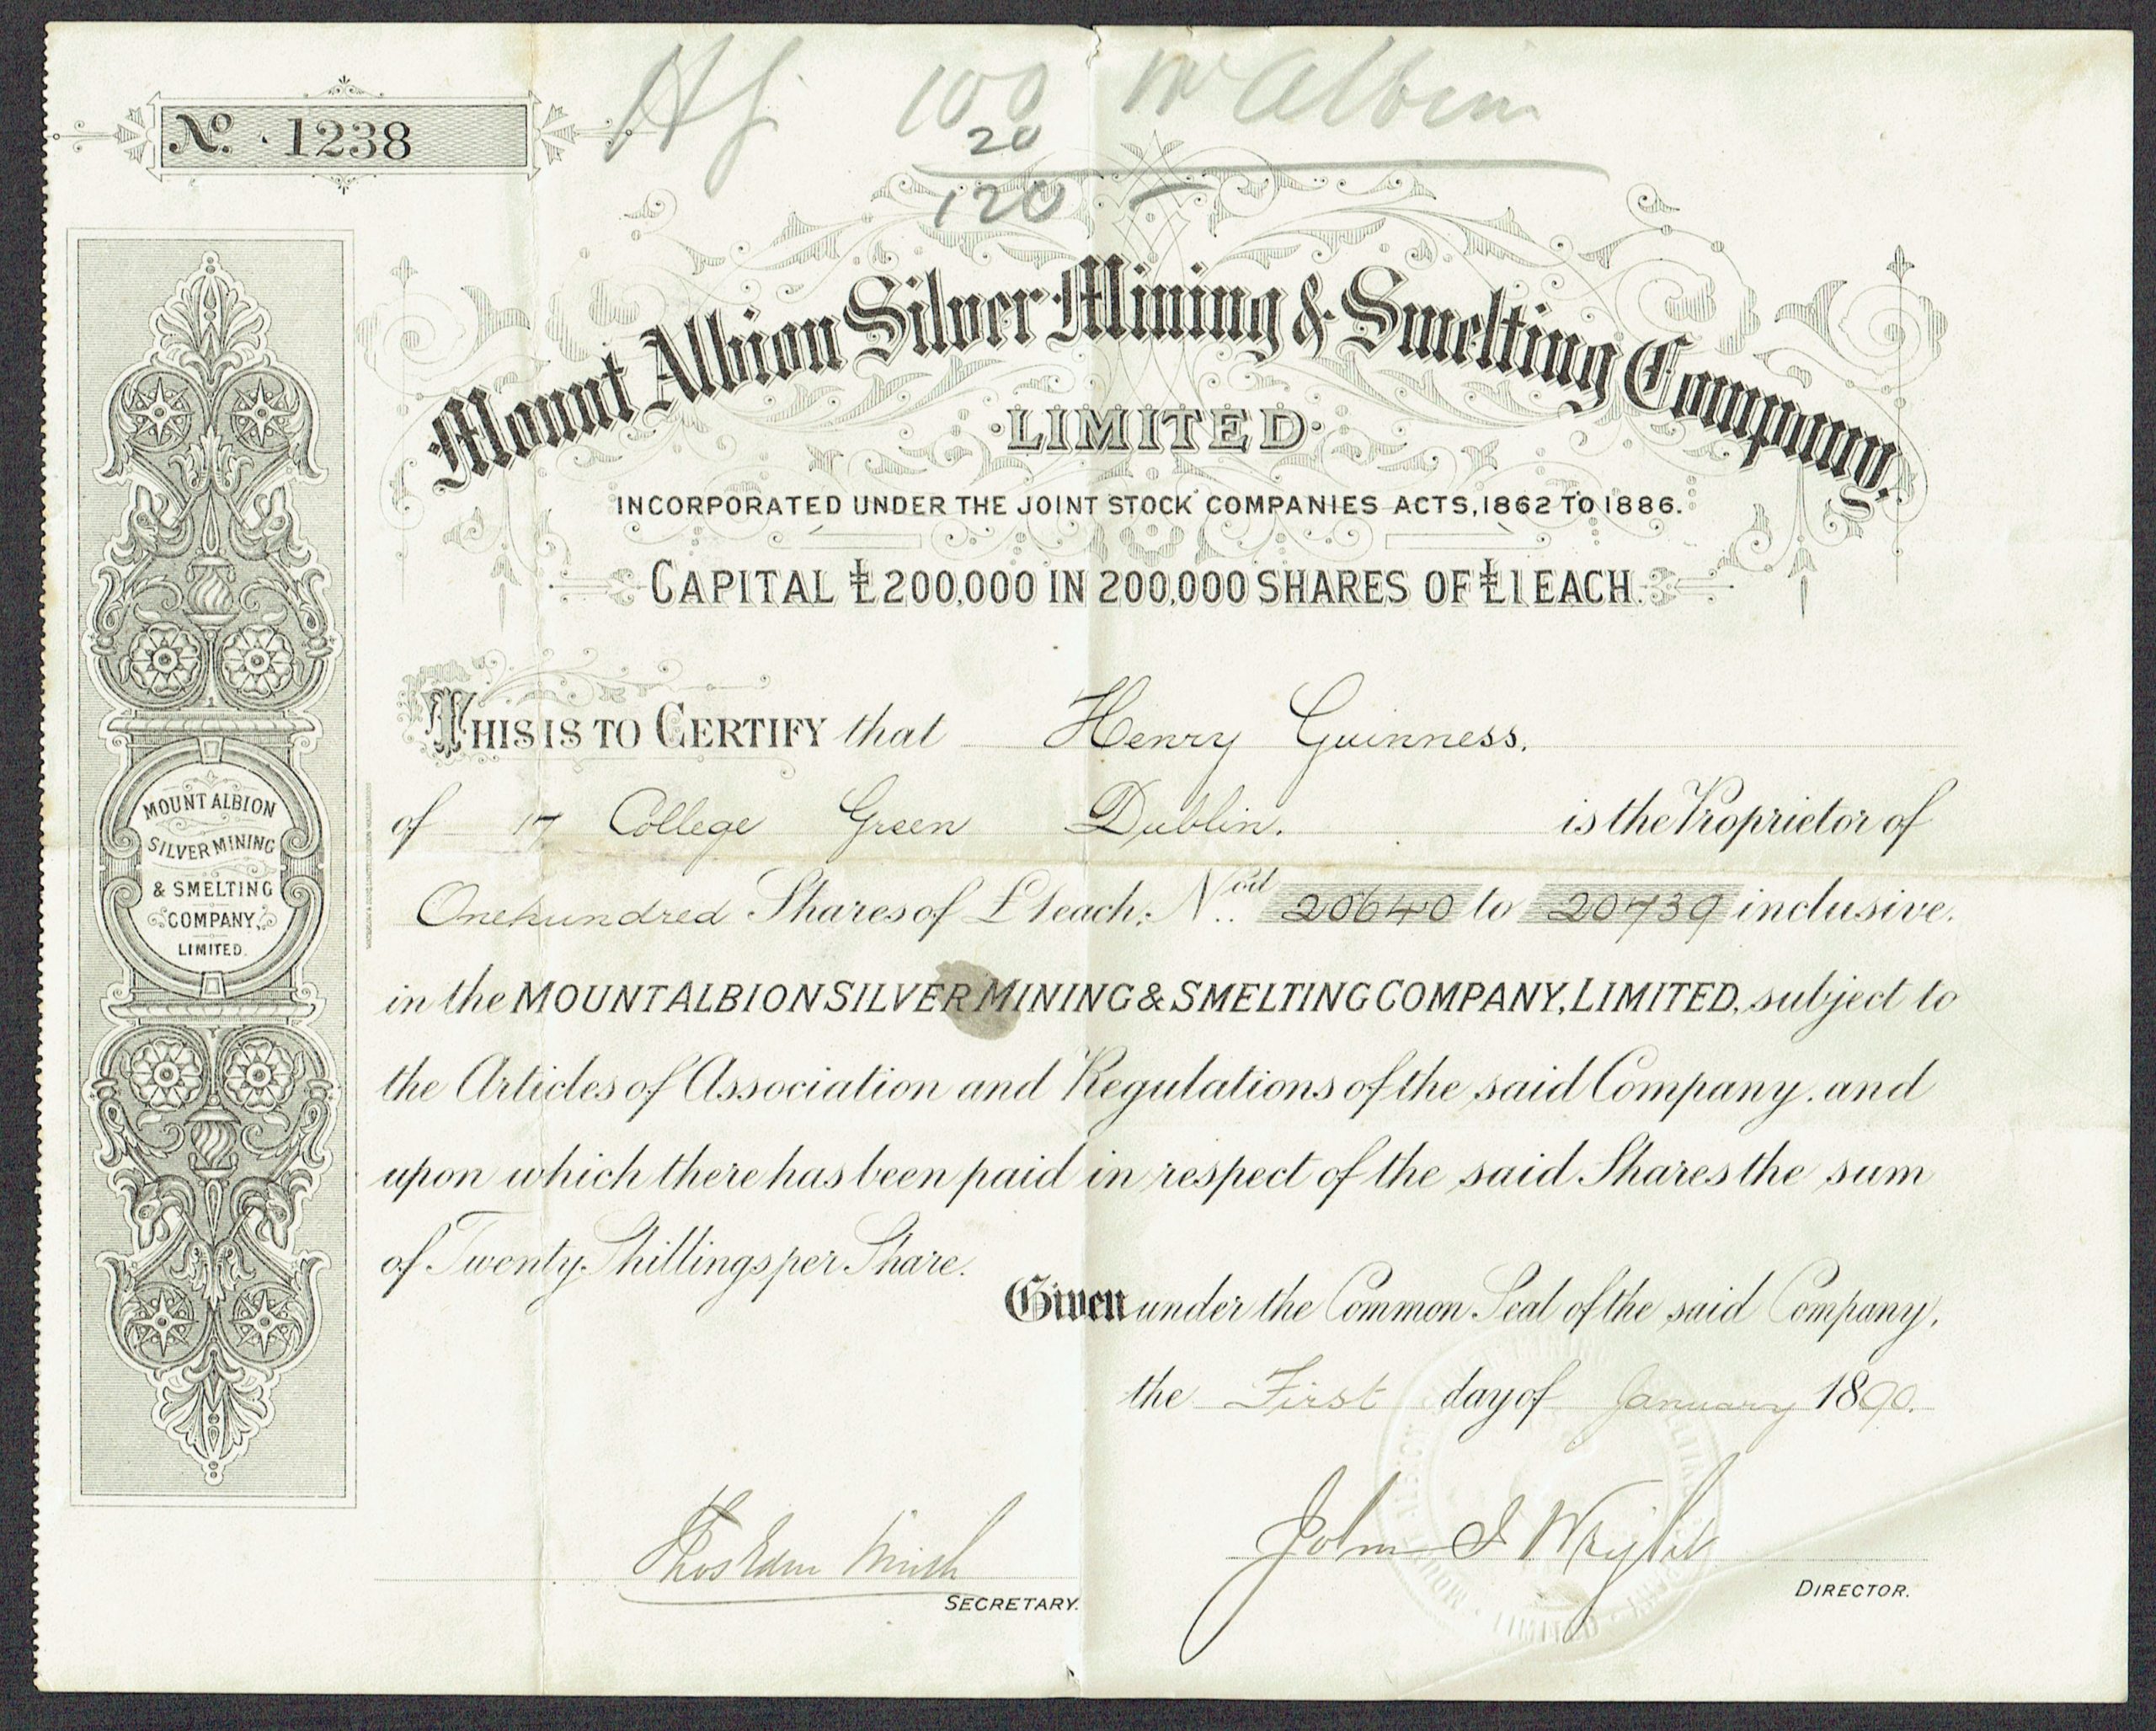 No. 1238
HG 100 Mt Albion
20
120
Mount Albion Silver Mining & Smelting Company,
LIMITED
INCORPORATED UNDER THE JOINT STOCK COMPANIES ACTS, 1862 TO 1886.
CAPITAL £200,000 IN 200,000 SHARES OF £1 EACH.
THIS IS TO CERTIFY that Henry Guinness.
of 17 College Green Dublin. is the Proprietor of
One hundred Shares of £1 each; Nos. 20640 to 20739 inclusive.
in the MOUNT ALBION SILVER MINING & SMELTING COMPANY, LIMITED, subject to
the Articles of Association and Regulations of the said Company, and
upon which there has been paid in respect of the said Shares the sum
of Twenty Shillings per Share.
Given under the Common Seal of the said Company,
the First day of January 1890.
John S Wright
SECRETARY.
DIRECTOR.
MOUNT ALBION
SILVER MINING
& SMELTING
COMPANY,
LIMITED.